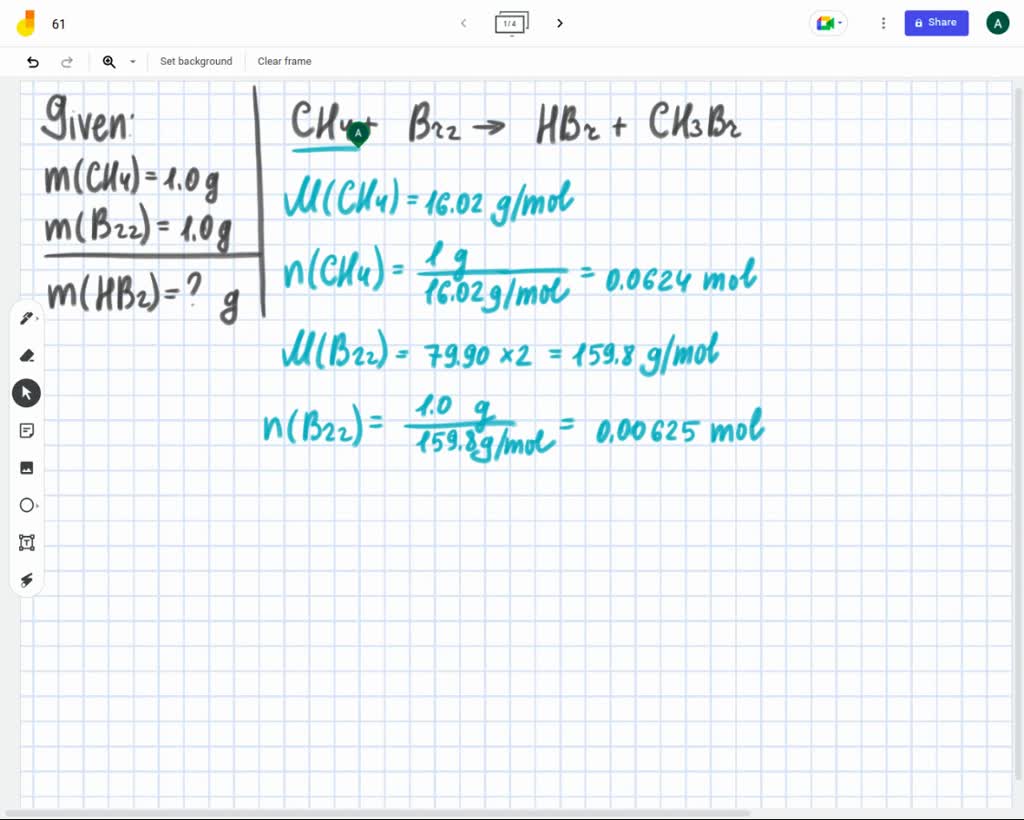 61
1/4
Share
A
Set background
Clear frame
Given:
m(CH4) = 1.0 g
m(Br2) = 1.0 g
m(HBr) = ? g
CH4 + Br2 → HBr + CH3Br
A
M(CH4) = 16.02 g/mol
n(CH4) = 1 g / 16.02 g/mol = 0.0624 mol
M(Br2) = 79.90 × 2 = 159.8 g/mol
n(Br2) = 1.0 g / 159.8 g/mol = 0.00625 mol
T